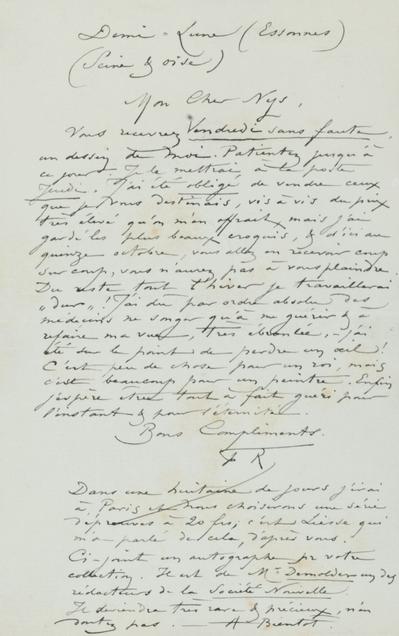 Demi-Lune (Essonnes)
(Seine & oise)
Mon Cher Nys,
Vous recevrez Vendredi sans faute,
un dessin de moi. Patientez jusqu'à
ce jour. Je le mettrai à la poste
Jeudi. J'ai été obligé de vendre ceux
que je vous destinais, vis à vis du prix
très élevé qu'on m'en offrait, mais j'ai
gardé les plus beaux croquis, & d'ici au
quinze octobre, vous allez en recevoir coup
sur coup, vous n'aurez pas à vous plaindre.
Du reste tout l'hiver je travaillerai
"dur"! J'ai dû par ordre absolu des
médecins ne songer qu'à me guérir & à
refaire ma vue, très ébranlée, - j'ai
été sur le point de perdre un œil!
C'est peu de chose pour un roi, mais
c'est beaucoup pour un peintre. Enfin
j'espère être tout à fait guéri pour
l'instant & pour l'éternité.
Bons Compliments.
F R
Dans une huitaine de jours j'irai
à Paris et nous choisirons une série
d'épreuves à 20 frs, c'est Liesse qui
m'a parlé de cela, d'après vous.
Ci-joint un autographe pr votre
collection. Il est de Mr Demolder un des
rédacteurs de la Société Nouvelle
Il deviendra très rare & précieux, n'en
doutez pas. — A Bientôt.